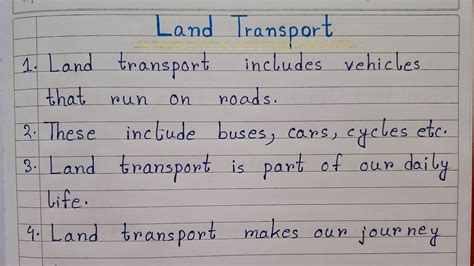 Land Transport
1. Land transport includes vehicles
that run on roads.
2. These include buses, cars, cycles etc.
3. Land transport is part of our daily
life.
4. Land transport makes our journey